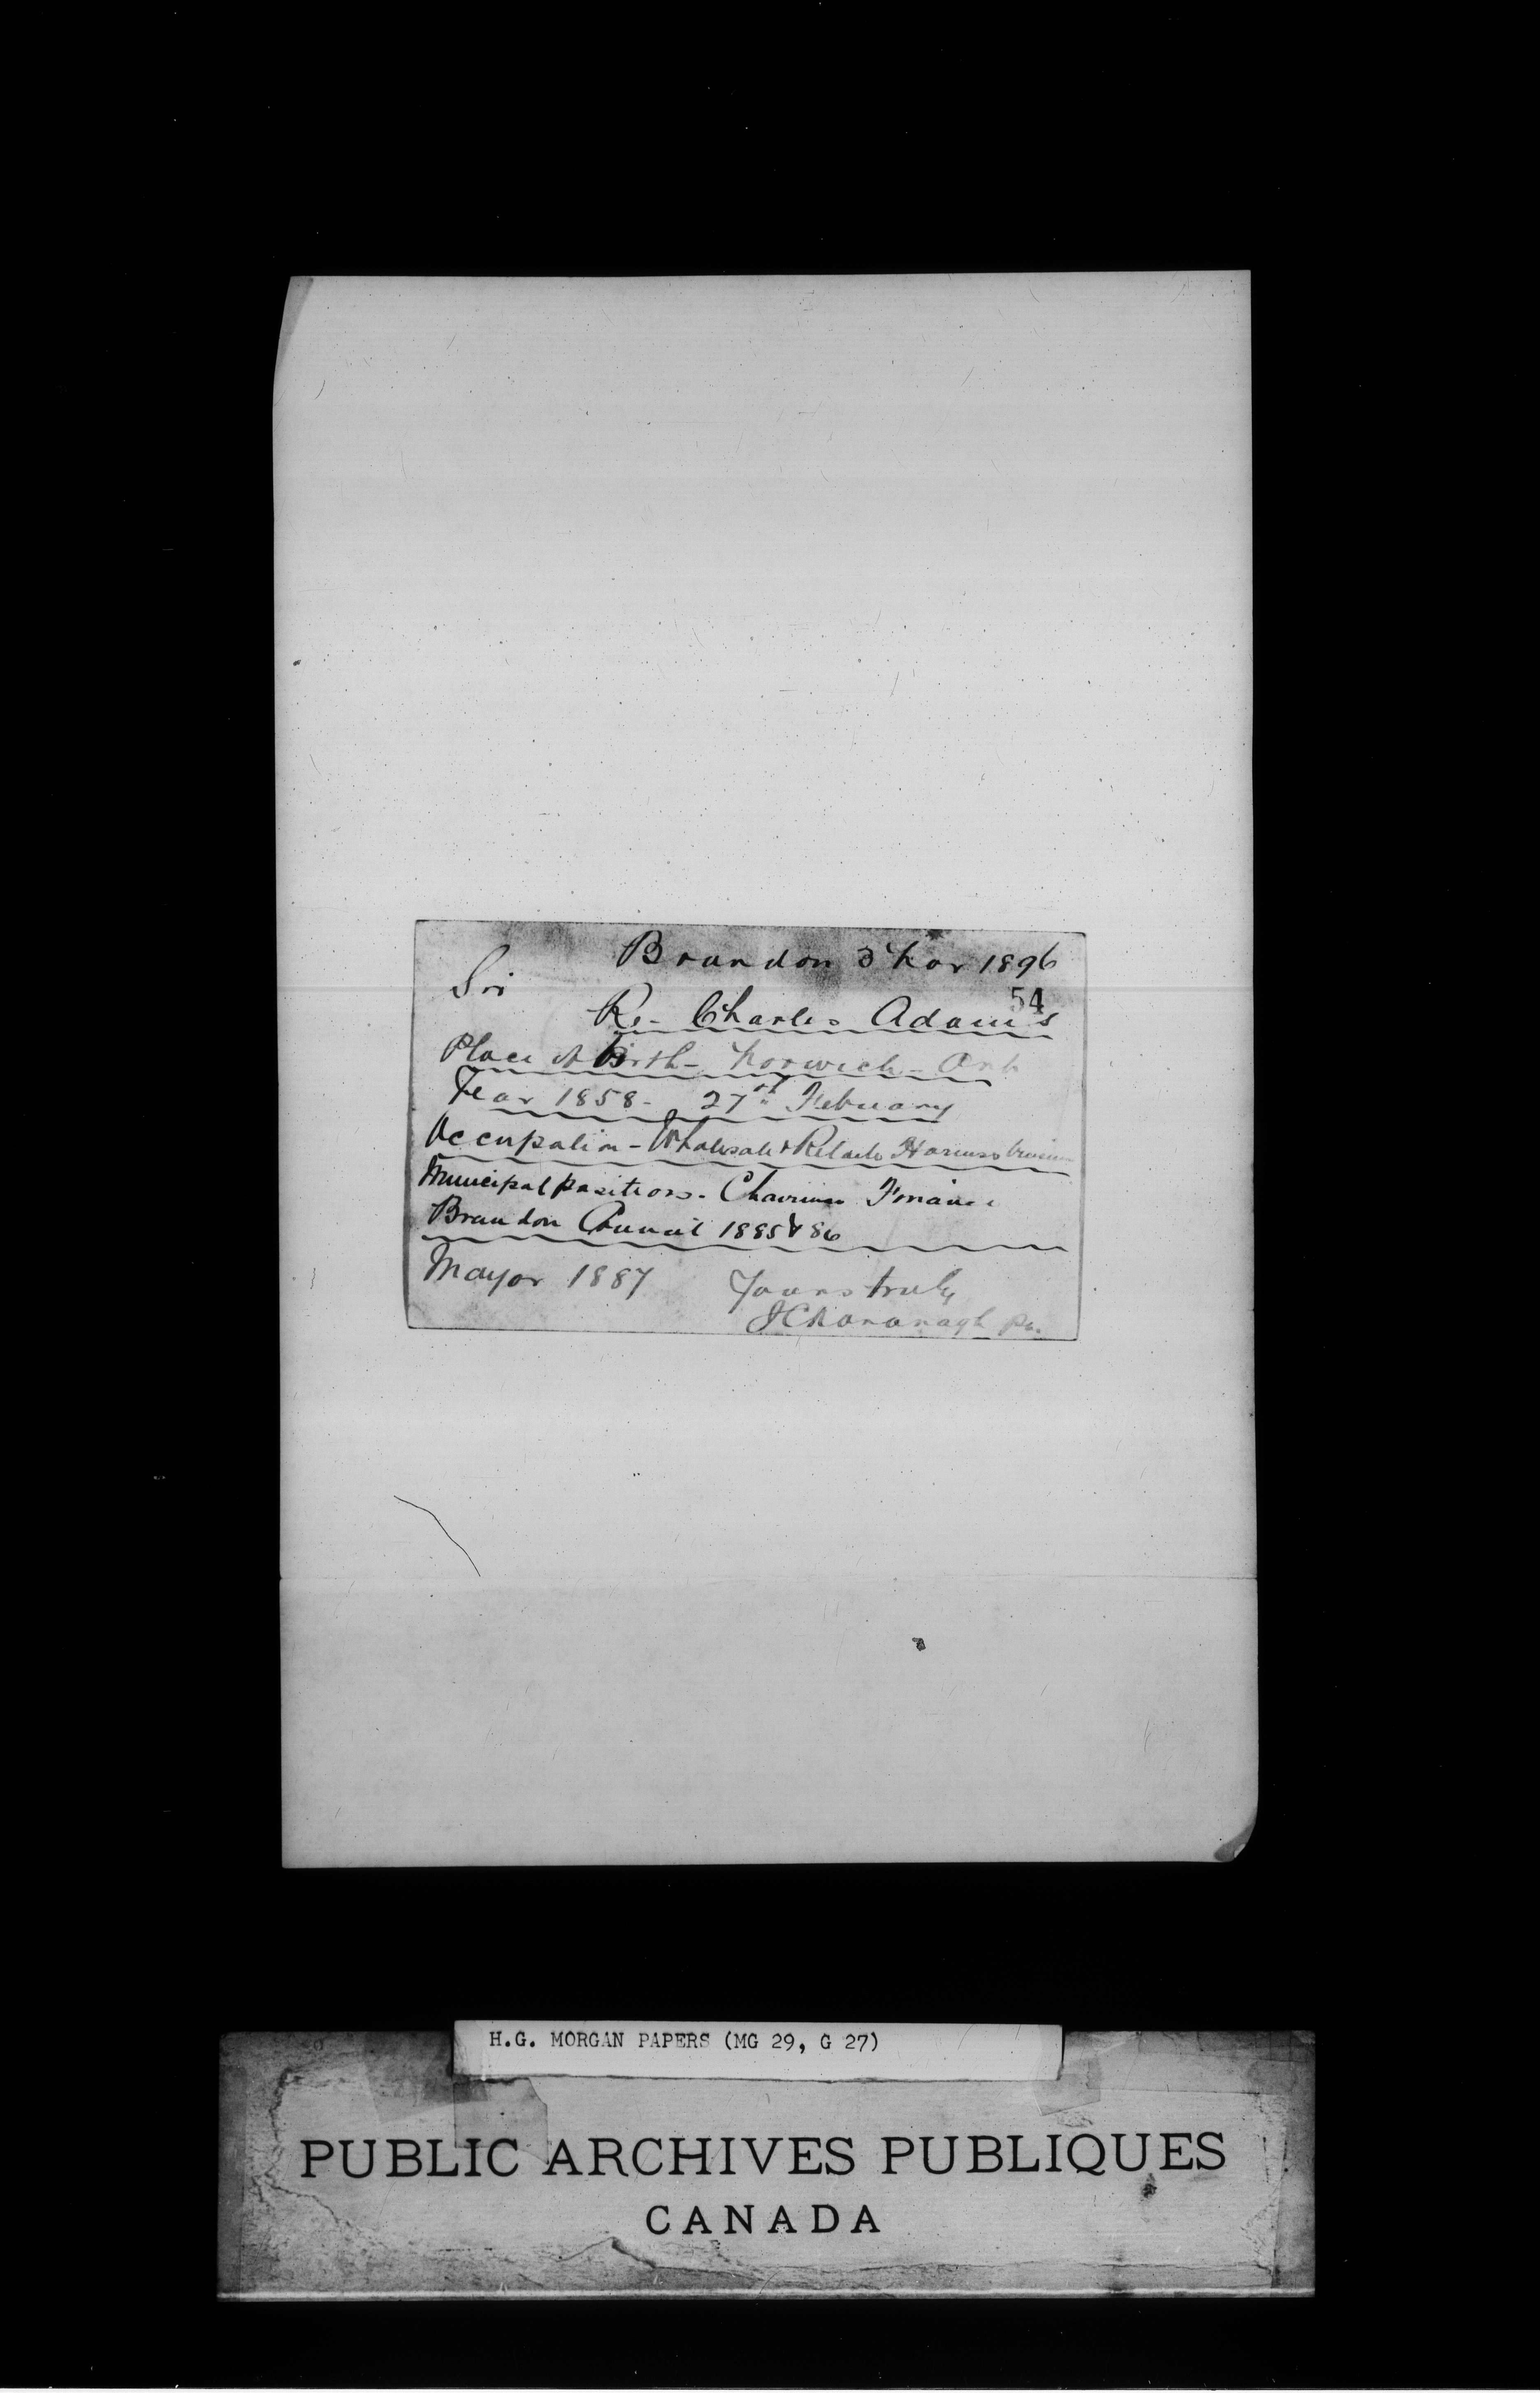 Brandon 3 Mar 1896
Sir
54
Re- Charles Adams
Place of Birth- Norwich- Ont
Year 1858- 27th Febuary
Occupation- Wholesale & Retail Harness
Municipal positions- Chairman Finance
Brandon Council 1885 & 86
Mayor 1887 Yours truly
J C Kavanagh
H.G. MORGAN PAPERS (MG 29, G 27)
PUBLIC ARCHIVES PUBLIQUES
CANADA